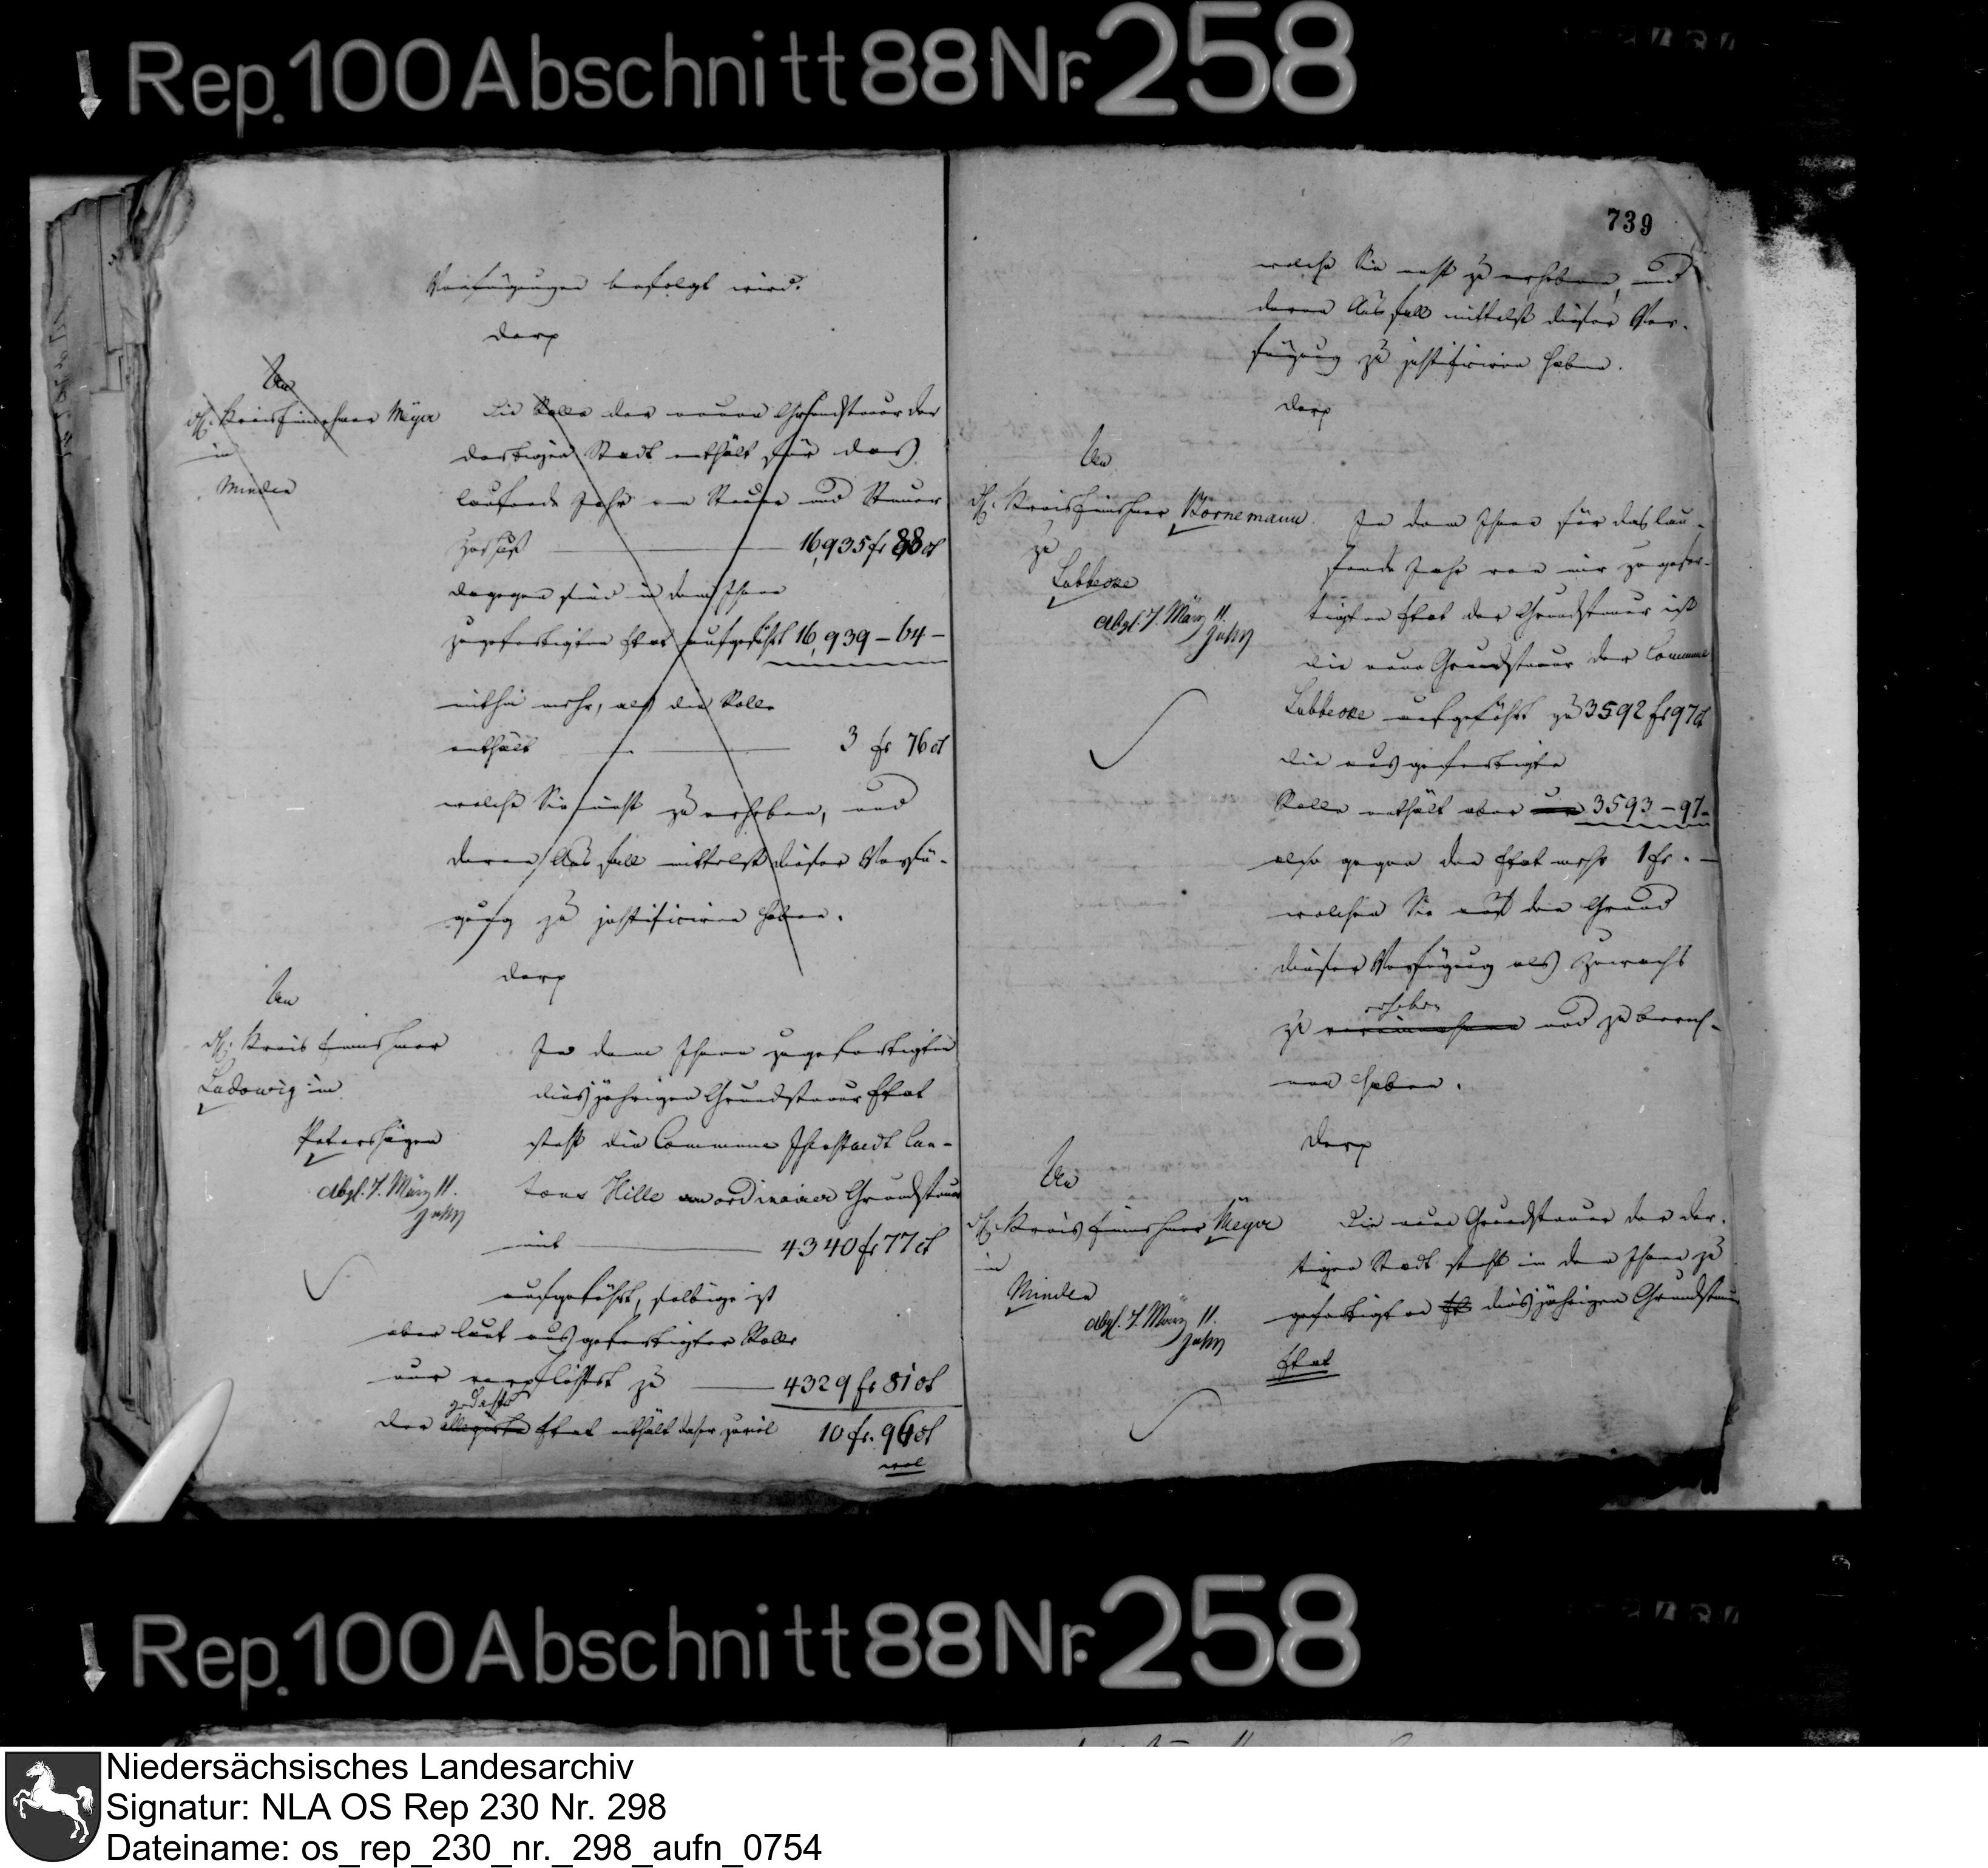 Rep. 100 Abschnitt 88 Nr. 258
Verfügungen befolgt wird.
Derp
An
H. Kreiseinnehmer Meyer
in
Minden
Die Rolle der neuen Grundsteuer der
dortigen Stadt enthält für das
laufende Jahr an Steuer und Steuer
Zuschuß 16,935 fr 88 ct
dagegen sind in dem Ihnen
zugefertigten Etat aufgeführt 16,939 - 64 -
mithin mehr, als die Rolle
enthält 3 fr 76 ct
welche Sie nicht zu erheben, und
deren Ausfall mittelst dieser Verfü-
gung zu justificiren haben.
Derp
An
H. Kreis Einnehmer
Ludowig in
Petershagen
abgl. 7. März 11.
Jahn
In dem Ihnen zugefertigten
diesjährigen Grundsteuer Etat
steht die Commune Can-
tons Hille an ordinairer Grundsteuer
mit 4340 fr 77 ct
aufgeführt, selbige ist
aber laut ausgefertigter Rolle
nur verpflichtet zu 4329 fr 81 ct
gedachte
der Etat enthält daher zuviel 10 fr. 96 ct
wel
739
welche Sie nicht zu erheben, und
deren Ausfall mittelst dieser Ver-
fügung zu justificiren haben.
Derp
An
H. Kreiseinnehmer Bornemann
zu
Lubbecke
abgl. 7. März 11.
Jahn
In dem Ihnen für das lau-
fende Jahr von mir zugefer-
tigten Etat der Grundsteuer ist
die neue Grundsteuer der Commune
Lubbecke aufgeführt zu 3592 fr 97 ct
die ausgefertigte
Rolle enthält aber 3593 - 97 -
also gegen den Etat mehr 1 fr. -
welchen Sie auf den Grund
dieser Verfügung als Zuwachs
erheben
zu vereinnehmen und zu berech-
nen haben.
Derp
An
H. Kreis Einnehmer Meyer
in
Minden
abgl. 7. März 11.
Jahn
Die neue Grundsteuer der dor-
tigen Stadt steht in dem Ihnen zu
gefertigten Et diesjährigen Grundsteuer
Etat
Rep. 100 Abschnitt 88 Nr. 258
Niedersächsisches Landesarchiv
Signatur: NLA OS Rep 230 Nr. 298
Dateiname: os_rep_230_nr._298_aufn_0754